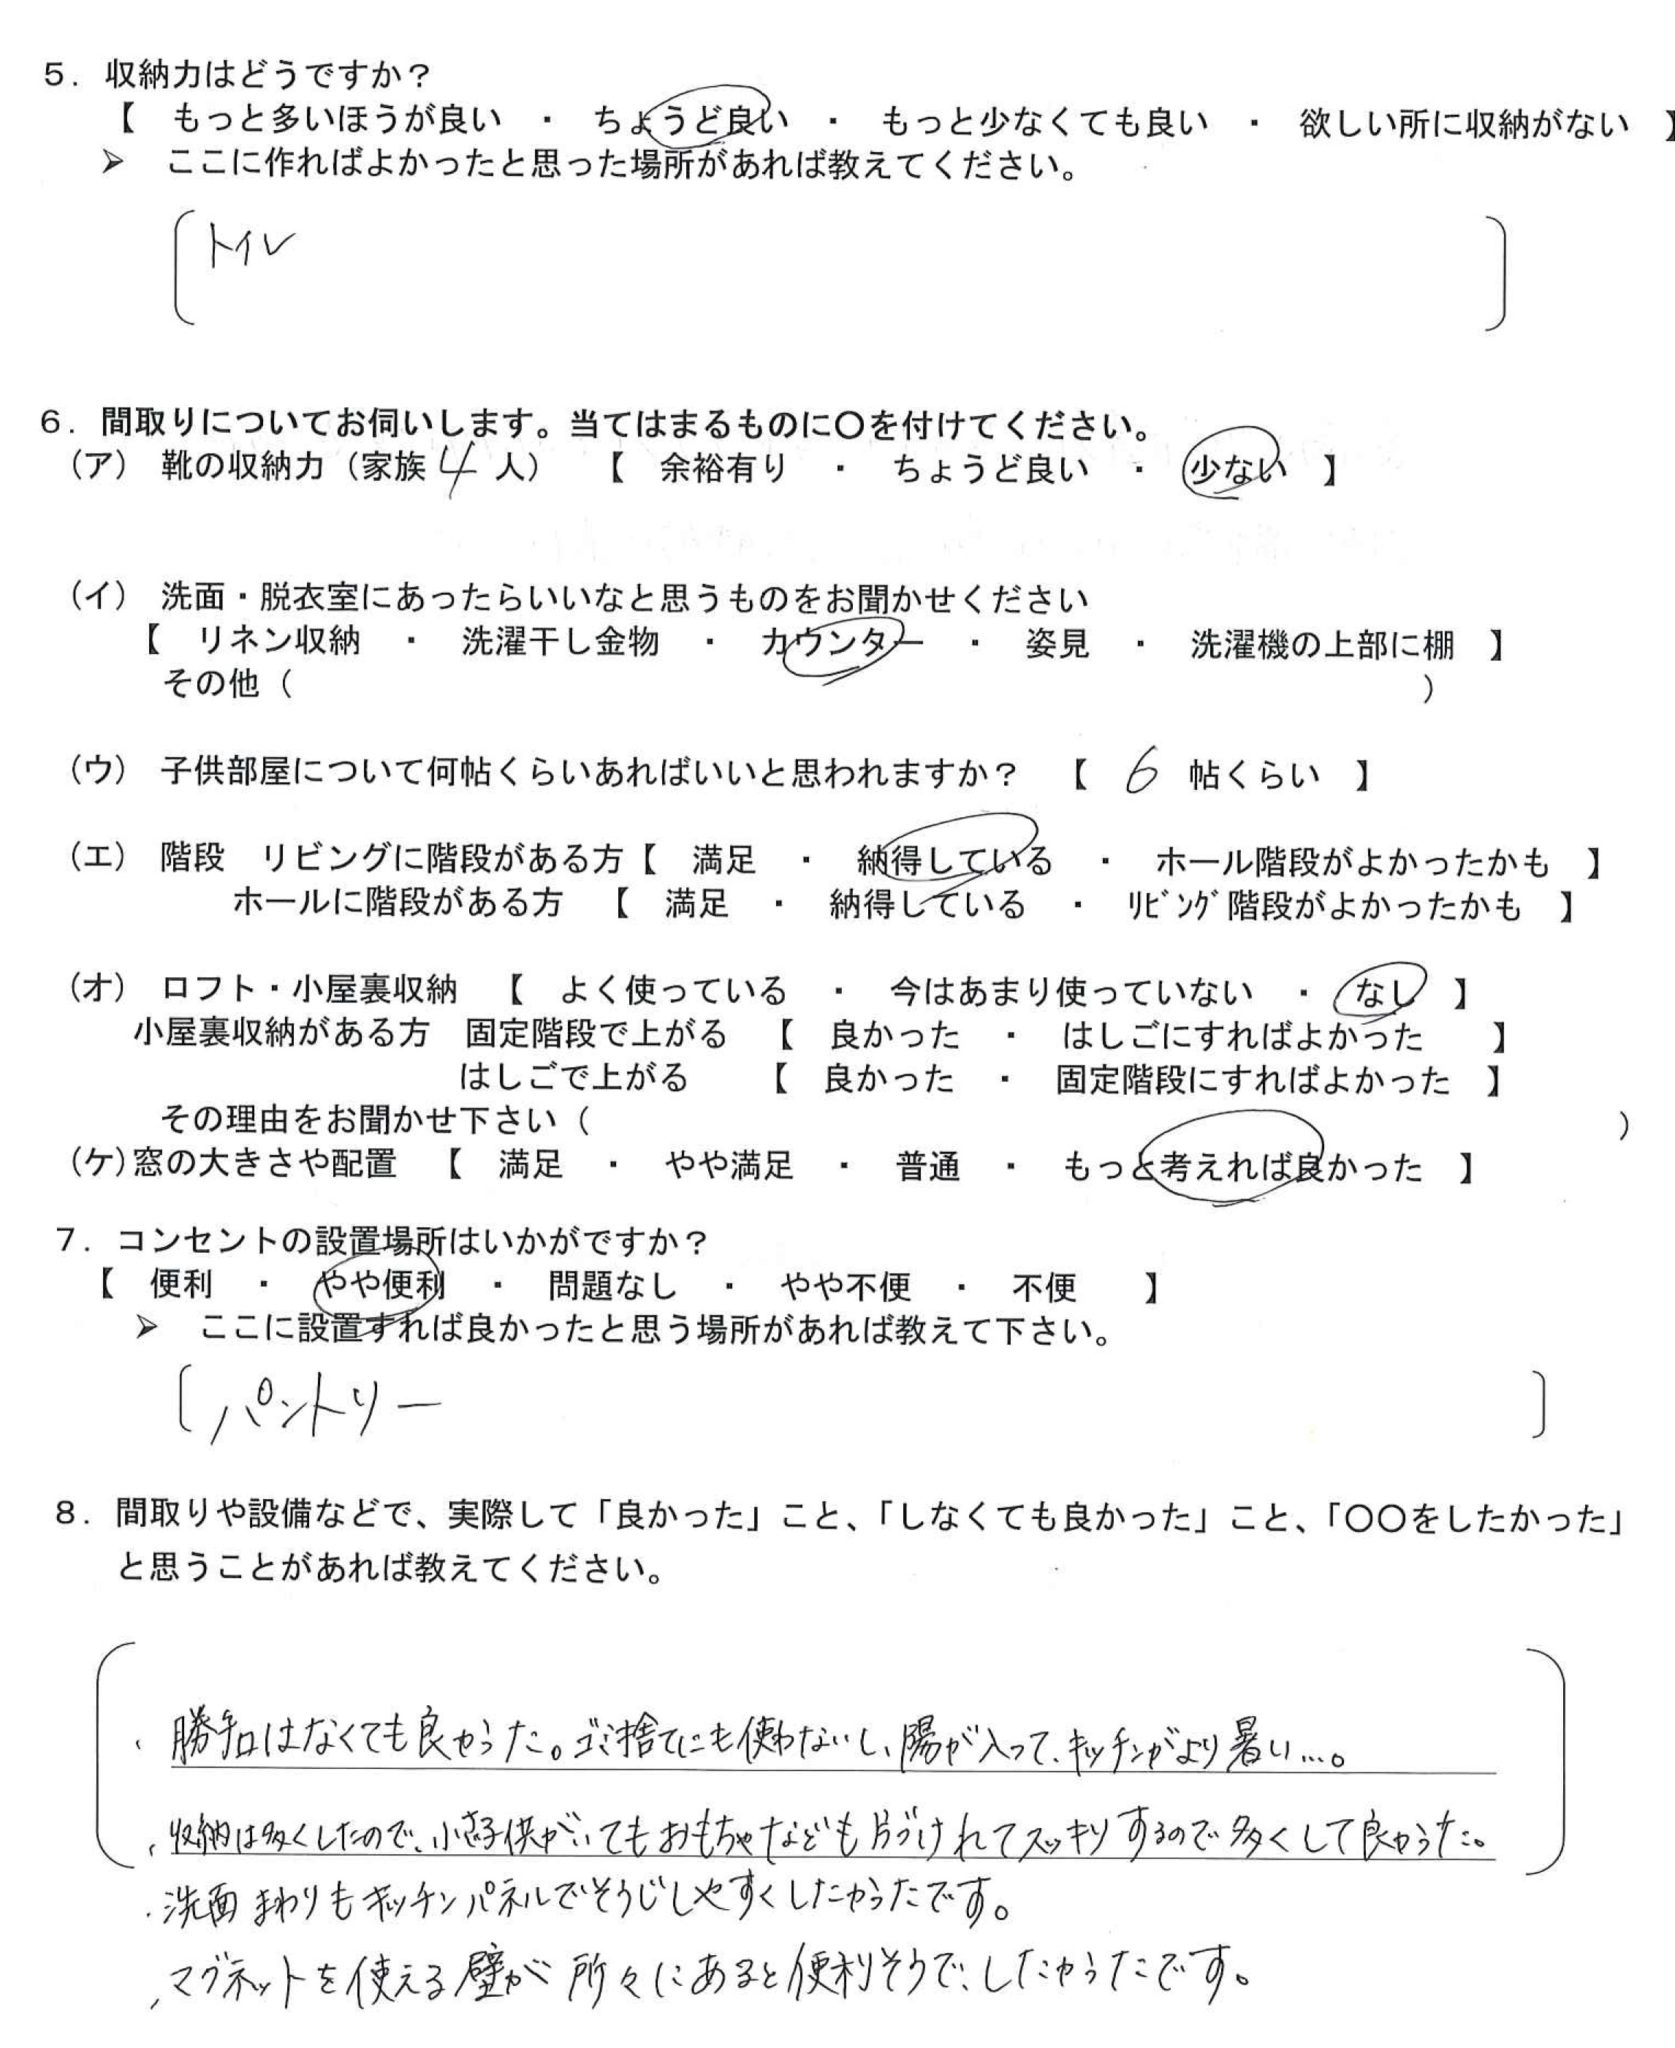 ５．収納力はどうですか？
【　もっと多いほうが良い　・　ちょうど良い　・　もっと少なくても良い　・　欲しい所に収納がない　】
➢　ここに作ればよかったと思った場所があれば教えてください。
トイレ
６．間取りについてお伺いします。当てはまるものに〇を付けてください。
（ア）　靴の収納力（家族 4 人）　【　余裕有り　・　ちょうど良い　・　少ない　】
（イ）　洗面・脱衣室にあったらいいなと思うものをお聞かせください
【　リネン収納　・　洗濯干し金物　・　カウンター　・　姿見　・　洗濯機の上部に棚　】
その他（　　　　　　　　　　）
（ウ）　子供部屋について何帖くらいあればいいと思われますか？　【　6　帖くらい　】
（エ）　階段　リビングに階段がある方【　満足　・　納得している　・　ホール階段がよかったかも　】
ホールに階段がある方　【　満足　・　納得している　・　ﾘﾋﾞﾝｸﾞ階段がよかったかも　】
（オ）　ロフト・小屋裏収納　【　よく使っている　・　今はあまり使っていない　・　なし　】
小屋裏収納がある方　固定階段で上がる　【　良かった　・　はしごにすればよかった　】
はしごで上がる　【　良かった　・　固定階段にすればよかった　】
その理由をお聞かせ下さい（　　　　　　　　　　）
（ケ）窓の大きさや配置　【　満足　・　やや満足　・　普通　・　もっと考えれば良かった　】
７．コンセントの設置場所はいかがですか？
【　便利　・　やや便利　・　問題なし　・　やや不便　・　不便　】
➢　ここに設置すれば良かったと思う場所があれば教えて下さい。
パントリー
８．間取りや設備などで、実際して「良かった」こと、「しなくても良かった」こと、「〇〇をしたかった」
と思うことがあれば教えてください。
・勝手口はなくても良かった。ゴミ捨てにも使わないし、陽が入って、キッチンがより暑い…。
・収納は多くしたので、小さな子供がいてもおもちゃなども片づけれてスッキリするので多くして良かった。
・洗面まわりもキッチンパネルでそうじしやすくしたかったです。
・マグネットを使える壁が所々にあると便利そうで、したかったです。